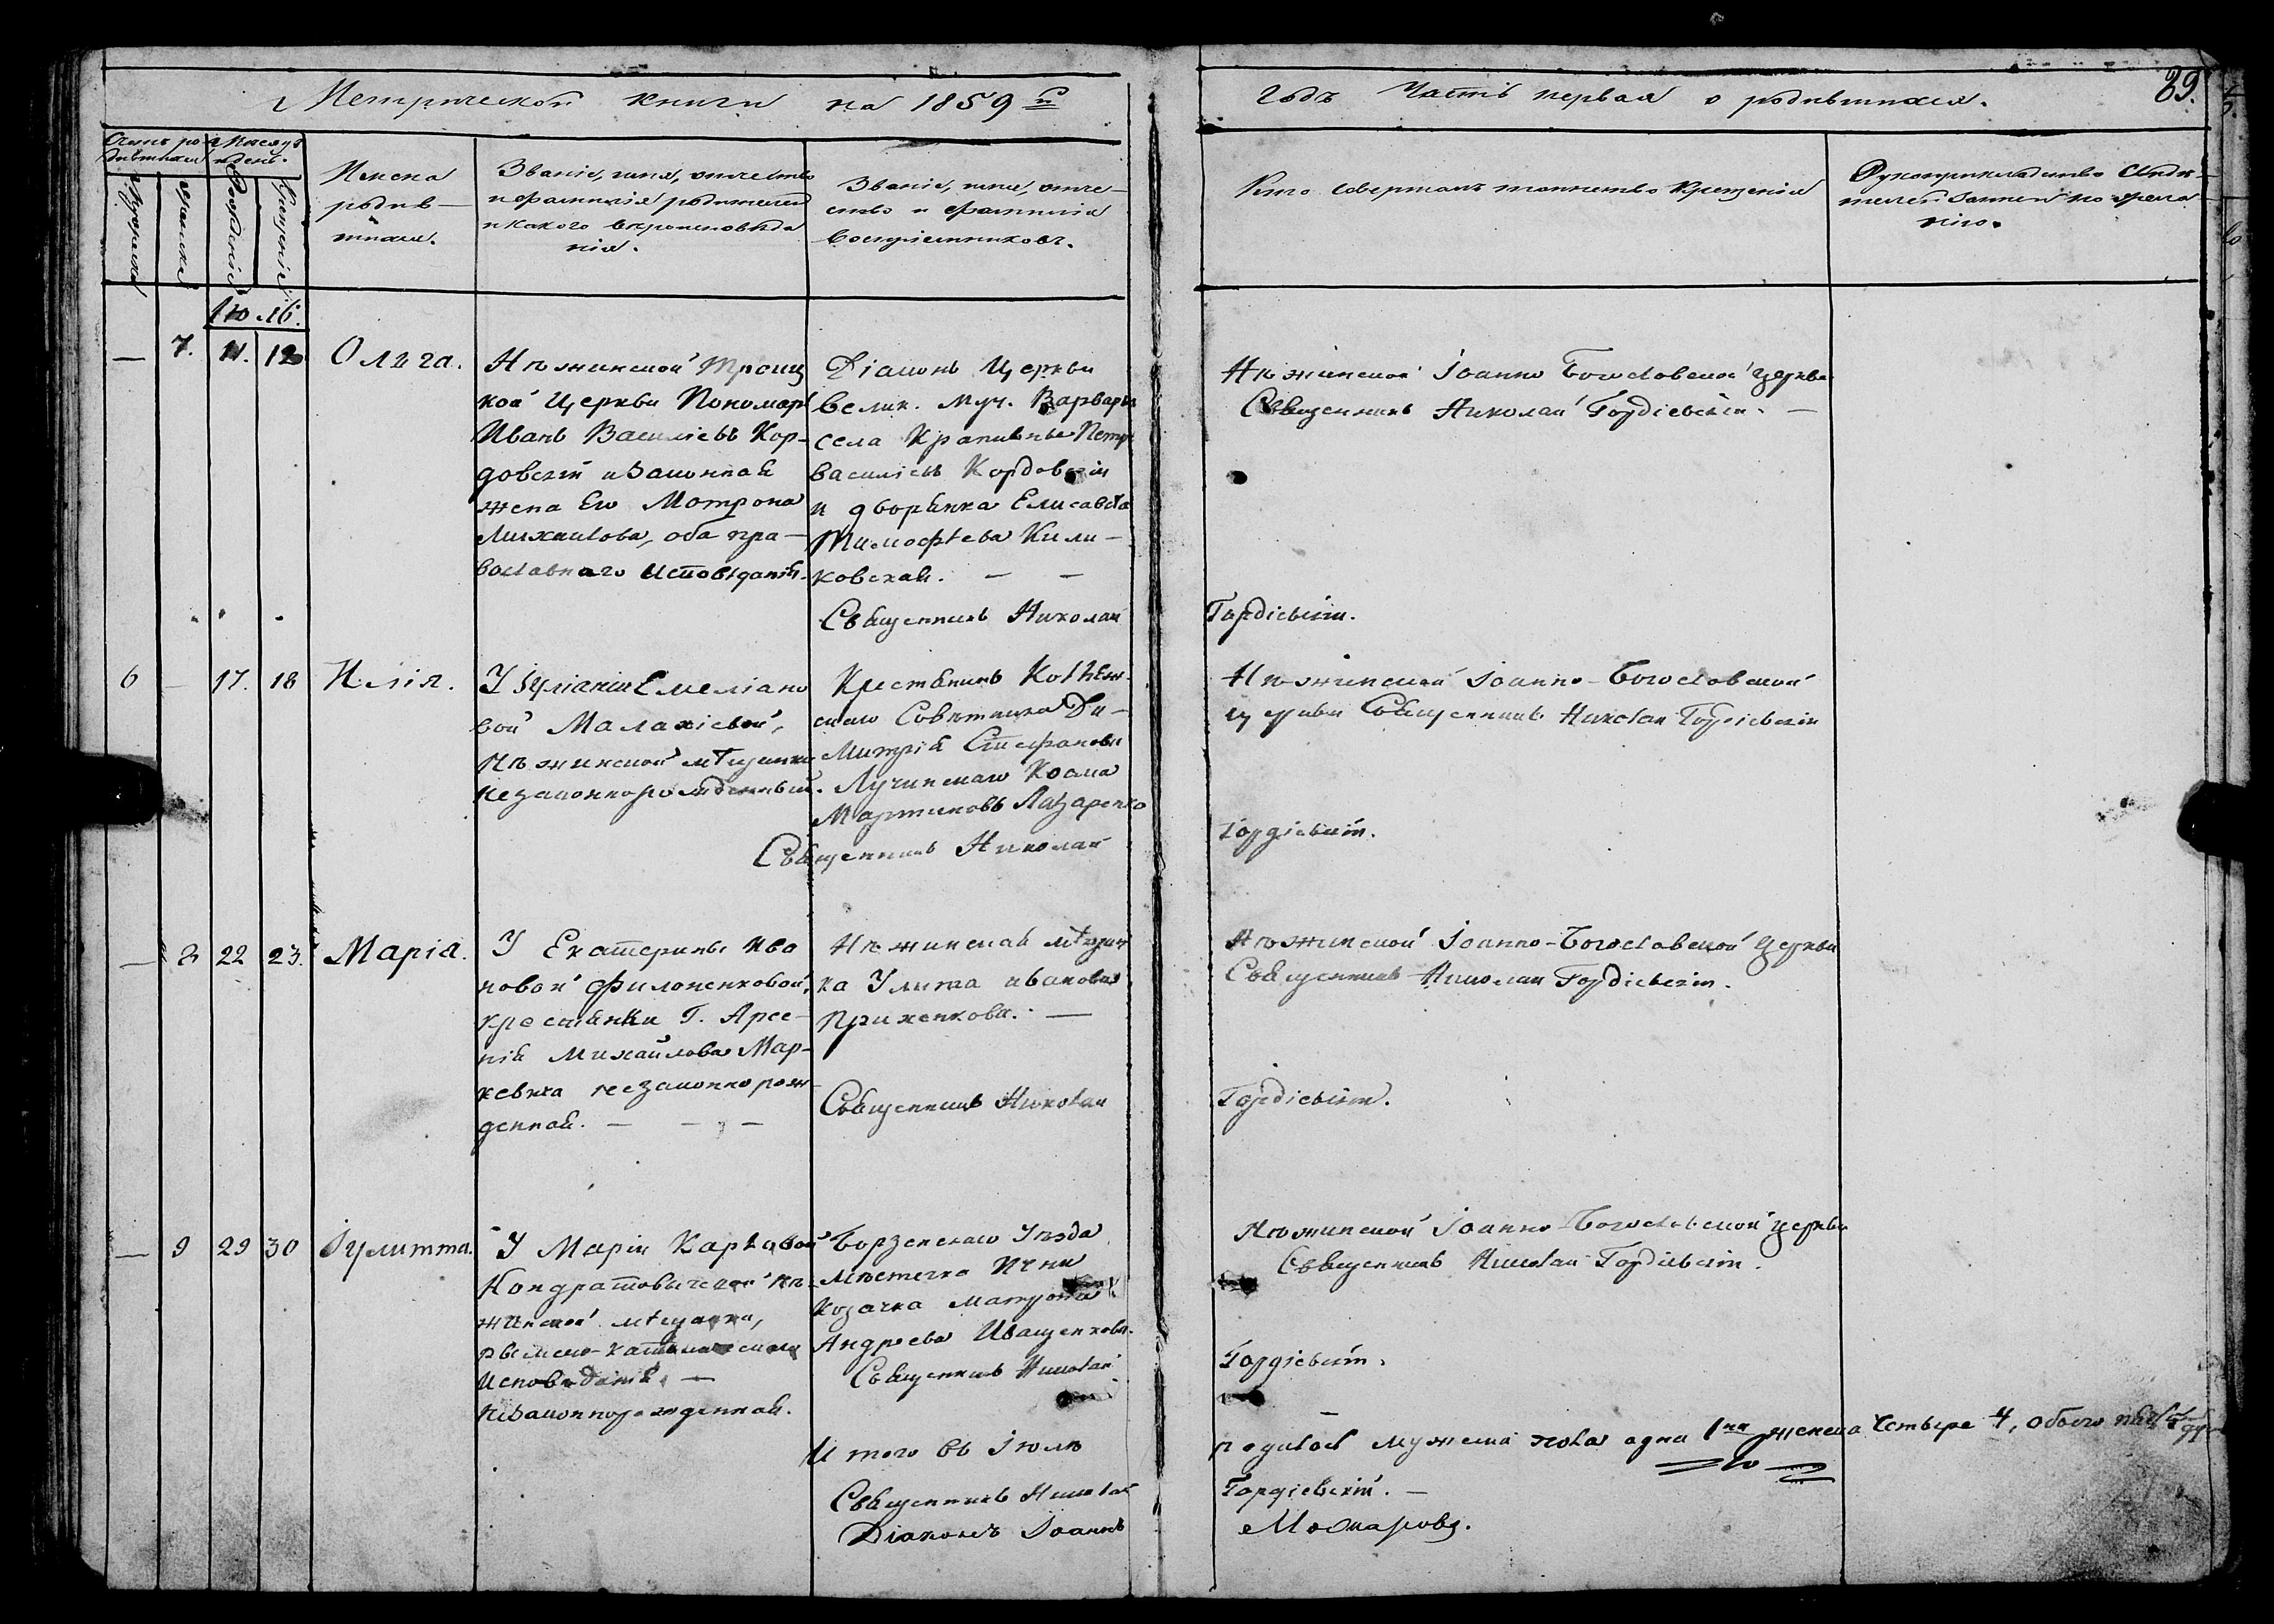 Метрической книги на 1859 й
годъ Часть первая о родившихся.
89.
Счетъ ро
дившихся
Мѣсяцъ
и день.
Мужеска
Женска
Рожденія
Крещенія
Имена
родив-
шихся.
Званіе, имя, отчество
и фамилія родителей
и какого вѣроисповѣда
нія.
Званіе, имя, отче-
ство и фамилія
воспріемниковъ.
Кто совершалъ таинство Крещенія
Рукоприкладство Свидѣ-
телей записи по жела
нію.
Іюль.
— 7. 11. 12 Ольга.
Нѣжинской Троиц
кой Церкви Пономарь
Иванъ Василіевъ Кор-
довскій и Законная
жена Его Мотрона
Михаилова, оба пра-
вославнаго Исповѣданія.
Діаконъ Церкви
велик. муч. Варвары
села Крапивны Петръ
Василіевъ Кордовскій
и дворянка Елисавета
Тимофѣева Кили-
ковская. — —
Священникъ Николай
Нѣжинской Іоанно Богословской Церкви
Священникъ Николай Гордіевскій. —
Гордіевскій.
6 — 17. 18 Илія.
У Іуліаніи Емеліано
вой Малахіевой,
Нѣжинской мѣщанки
незаконнорожденный.
Крестянинъ Коллеж-
скаго Совѣтника Ди-
митрія Стефанова
Лучинскаго Козма
Мартиновъ Лазаренко
Священникъ Николай
Нѣжинской Іоанно-Богословской
церкви Священникъ Николай Гордіевскій
Гордіевскій.
— 8 22 23. Марія.
У Екатерины Ива
новой Филоненковой,
крестянки Г. Арсе-
нія Михайлова Мар-
кевича незаконнорож-
денная. — — —
Нѣжинская мѣщан
ка Улита Иванова
Приженкова. —
Священникъ Николай
Нѣжинской Іоанно-Богословской Церкви
Священникъ Николай Гордіевскій.
Гордіевскій.
— 9 29 30 Іулитта.
У Маріи Карловой
Кондратовической Нѣ-
жинской мѣщанки,
римско-католическаго
Исповѣданія. —
Незаконнорожденная.
Борзенскаго Уѣзда
Мѣстечка Ични
Козачка Матрона
Андреева Иващенкова.
Священникъ Николай
Нѣжинской Іоанно-Богословской церкви
Священникъ Николай Гордіевскій.
Гордіевскій.
И того въ Іюлѣ
родилось мужеска пола одна 1 женска Четыре 4, обоего
Священникъ Николай
Гордіевскій. —
Діаконъ Іоаннъ